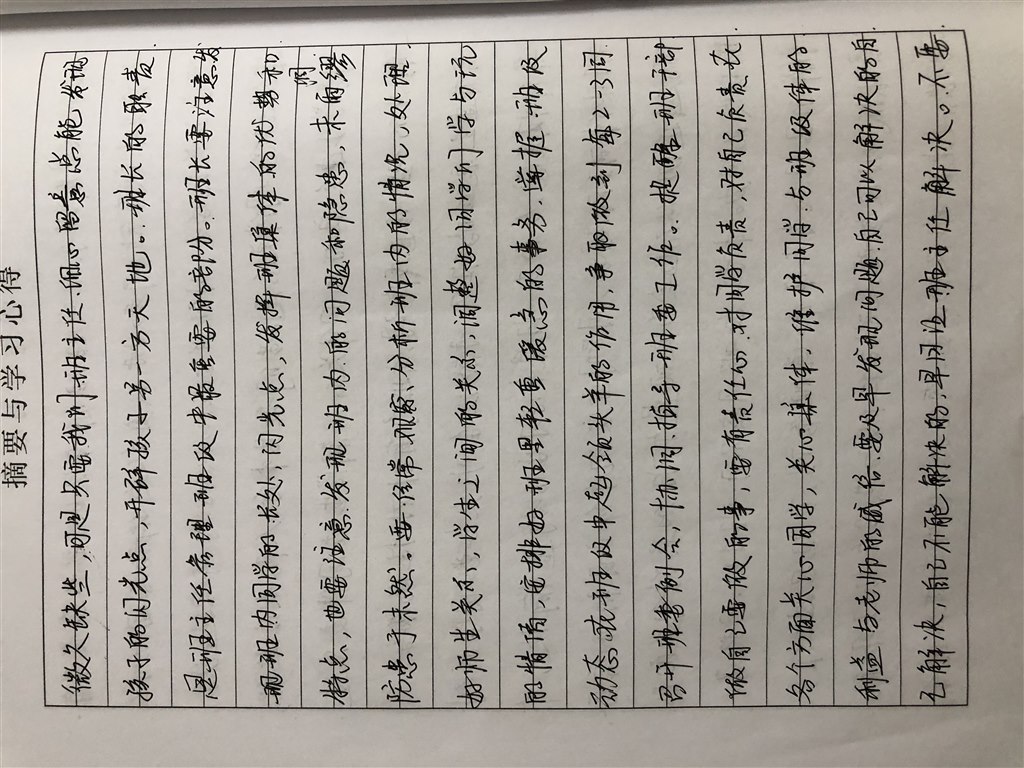 摘要与学习心得
微欠缺些,可是只要我们班主任细心留意总能发现
孩子的闪光点,开辟孩子另一方天地。班长的职责
是班主任管理班级中最重要的部份。班长要注意发
现班内同学的长处,闪光点,发挥班集体的优势和
特点,也要注意发现班内的问题和隐患,未雨绸缪
防患于未然。要经常观察、分析班内的情况,处理
好师生关系,学生之间的关系,调整好同学们学与玩
的情绪,安排好班里轻重缓急的事务,掌握班级
动态,在班级中起领头羊的作用,争取做到每2-3周
召开班委例会,协同指导班委工作。提醒班干部
做自己要做的事,要有责任心,对同学负责,对自己负责,在
各个方面关心同学,关心集体,维护同学与班级体的
利益与老师的威信。要及早发现问题,自己可以解决的自
己解决,自己不能解决的,早同班主任解决。不要